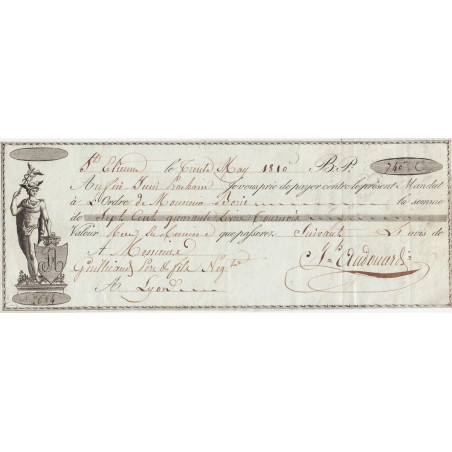 St Etienne le Trente May 1810 B.P. 740 C
Au fin Juin prochain Je vous prie de payer contre le présent Mandat
à L'Ordre de Monsieur la somme
de Sept Cent quarante
Valeur que passerez Suivant L'avis de
A Monsieur
Guilliand Père & fils Negts
A Lyon
Audouard